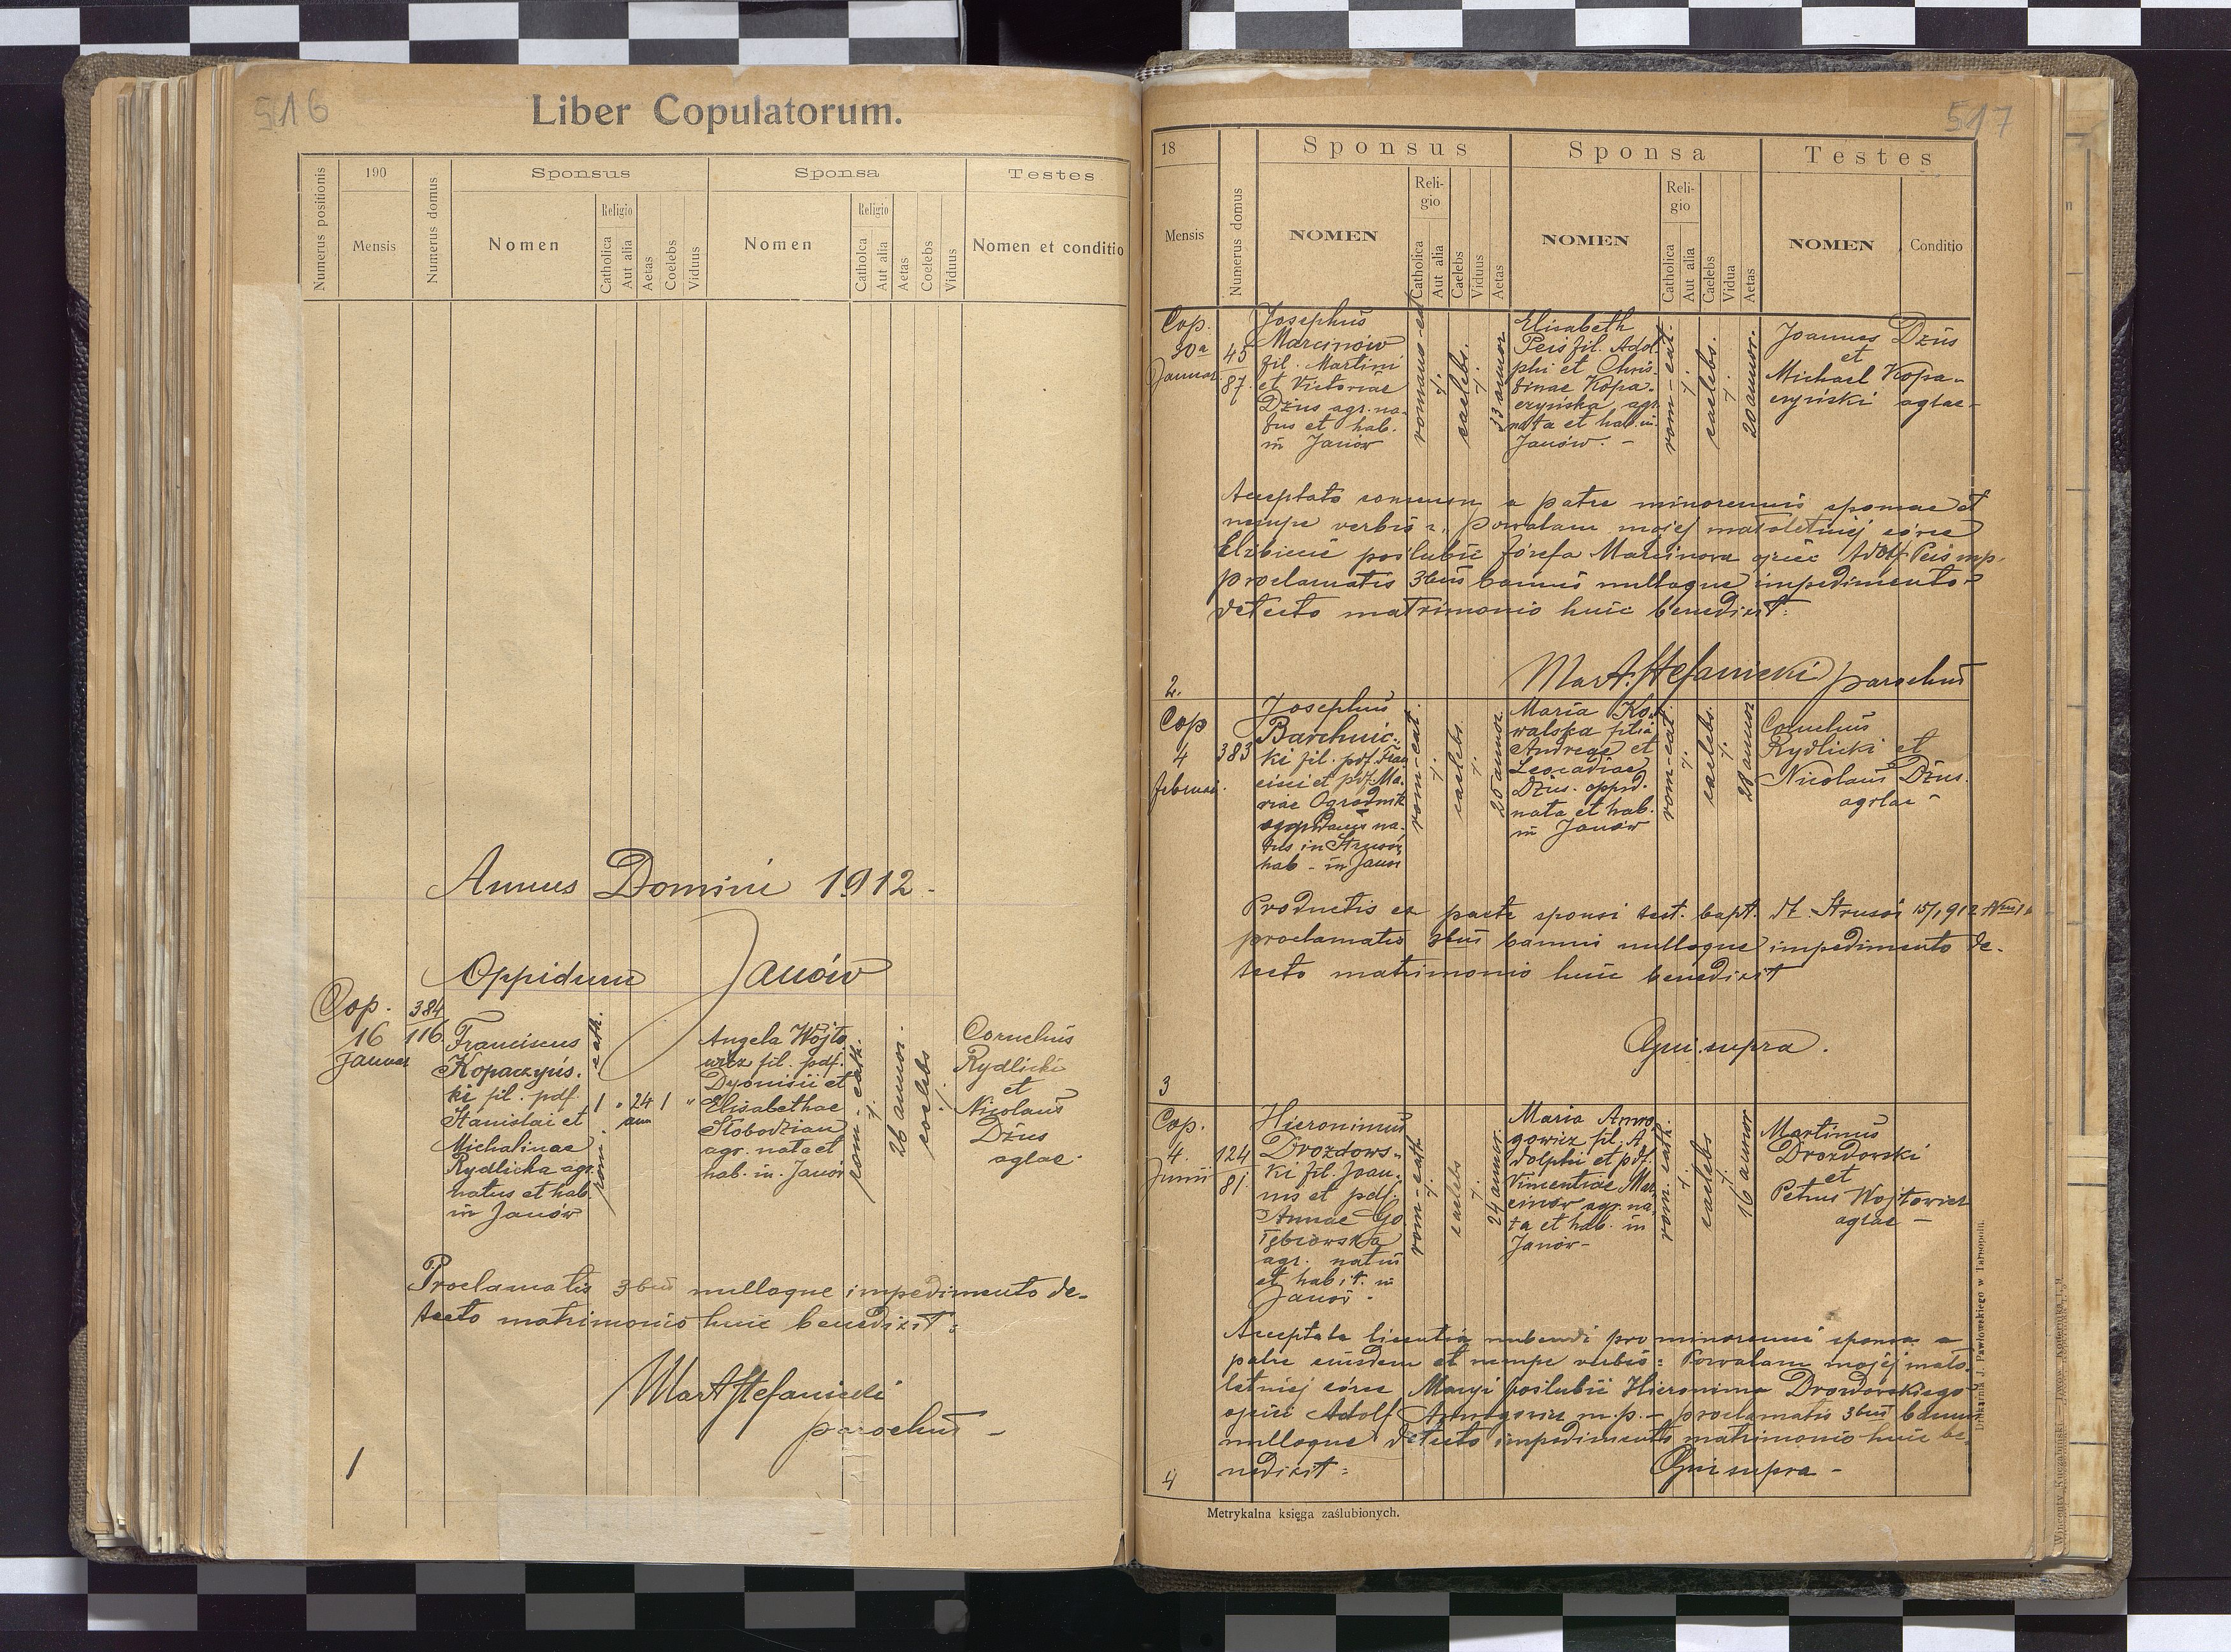 516
Liber Copulatorum.
Numerus positionis
190
Mensis
Numerus domus
Sponsus
Nomen
Religio
Catholica
Aut alia
Aetas
Coelebs
Viduus
Sponsa
Nomen
Religio
Catholica
Aut alia
Aetas
Coelebs
Viduus
Testes
Nomen et conditio
Annus Domini 1912.
Oppidum Janów
Cop.
16
Januar
384
116
Franciscus
Kopaczyńs.
ki fil. pdf.
Stanislai et
Michalinae
Rydlicka agr.
natus et hab.
in Janów
rom. cath.
1 " 24 1 "
ann
Angela Wojto
wicz fil. pdf.
Dyonisii et
Elisabethae
Słobodzian
agr. nata et
hab. in Janów
rom-cath.
26 annor.
coelebs
Cornelius
Rydlicki
et
Nicolaus
Dżus
aglae.
Proclamatis 3bus nulloque impedimento de-
tecto matrimonio huic benedixit:
Mart Stefanicki
parochus -
1
517
18
Mensis
Numerus domus
Sponsus
NOMEN
Reli-
gio
Catholica
Aut alia
Caelebs
Viduus
Aetas
Sponsa
NOMEN
Reli-
gio
Catholica
Aut alia
Caelebs
Vidua
Aetas
Testes
NOMEN
Conditio
Cop.
30a
Januar
45
87.
Josephus
Marcinów
fil. Martini
et Victoriae
Dżus agr. na-
tus et hab.
in Janów
romano-cat
caelebs.
23 annor
Elisabeth
Peis fil. Adol-
phi et Chris-
tinae Kopa-
czyńska agr.
nata et hab. in
Janów. -
rom-cat.
caelebs.
20 annor.
Joannes Dżus
et
Michael Kopa-
czyński aglae-
Acceptato consensu a patre minorennis sponsae et
nempe verbis: "Pozwalam mojej małoletniej córce
Elżbiecie poślubić Józefa Marcinowa ojciec Adolf Peis mp.
proclamatis 3bus bannis nulloque impedimento
detecto matrimonio huic benedixit:
Mart. Stefanicki parochus
2.
Cop
4
februar.
383
Josephus
Barchnic-
ki fil. pdf. Fran
cisci et pdf. Ma-
riae Ogrodnik
oppidanus na-
tus in Strusów
hab - in Janów
rom-cat.
caelebs.
25 annor.
Maria Ko-
walska filia
Andreae et
Leocadiae
Dżus. oppid.
nata et hab.
in Janów
rom-cat.
caelebs.
28 annor
Cornelius
Rydlicki et
Nicolaus Dżus.
agrlae -
Productis ex parte sponsi test. bapt. dt. Strusów 15/1 912
proclamatis 3bus bannis nulloque impedimento de-
tecto matrimonio huic benedixit
Qui supra.
3
Cop.
4.
Junii
124
81.
Hieronimus
Drozdows-
ki fil. Joan-
nis et pdf.
Annae Go
łębiowska
agr. natus
et habit. in
Janów.
rom-cath
caelebs
24 annor.
Maria Amro
gowicz fil. A
dolphi et pdf.
Vincentiae Mar
cinów agr. na
ta et hab. in
Janów-
rom. cath.
caelebs
16 annor
Martinus
Drozdowski
et
Petrus Wojtowicz
aglae -
Acceptata licentia nubendi pro minorenni sponsa a
patre eiusdem et nempe verbis: Pozwalam mojej mało-
letniej córce Maryi poślubić Hieronima Drozdowskiego
ojciec Adolf Amrogowicz m.p. - proclamatis 3bus bannis
nulloque detecto impedimento matrimonio huic be-
nedixit:
Qui supra -
4
Metrykalna księga zaślubionych.
Drukarnia J. Pawłowskiego w Tarnopolu.